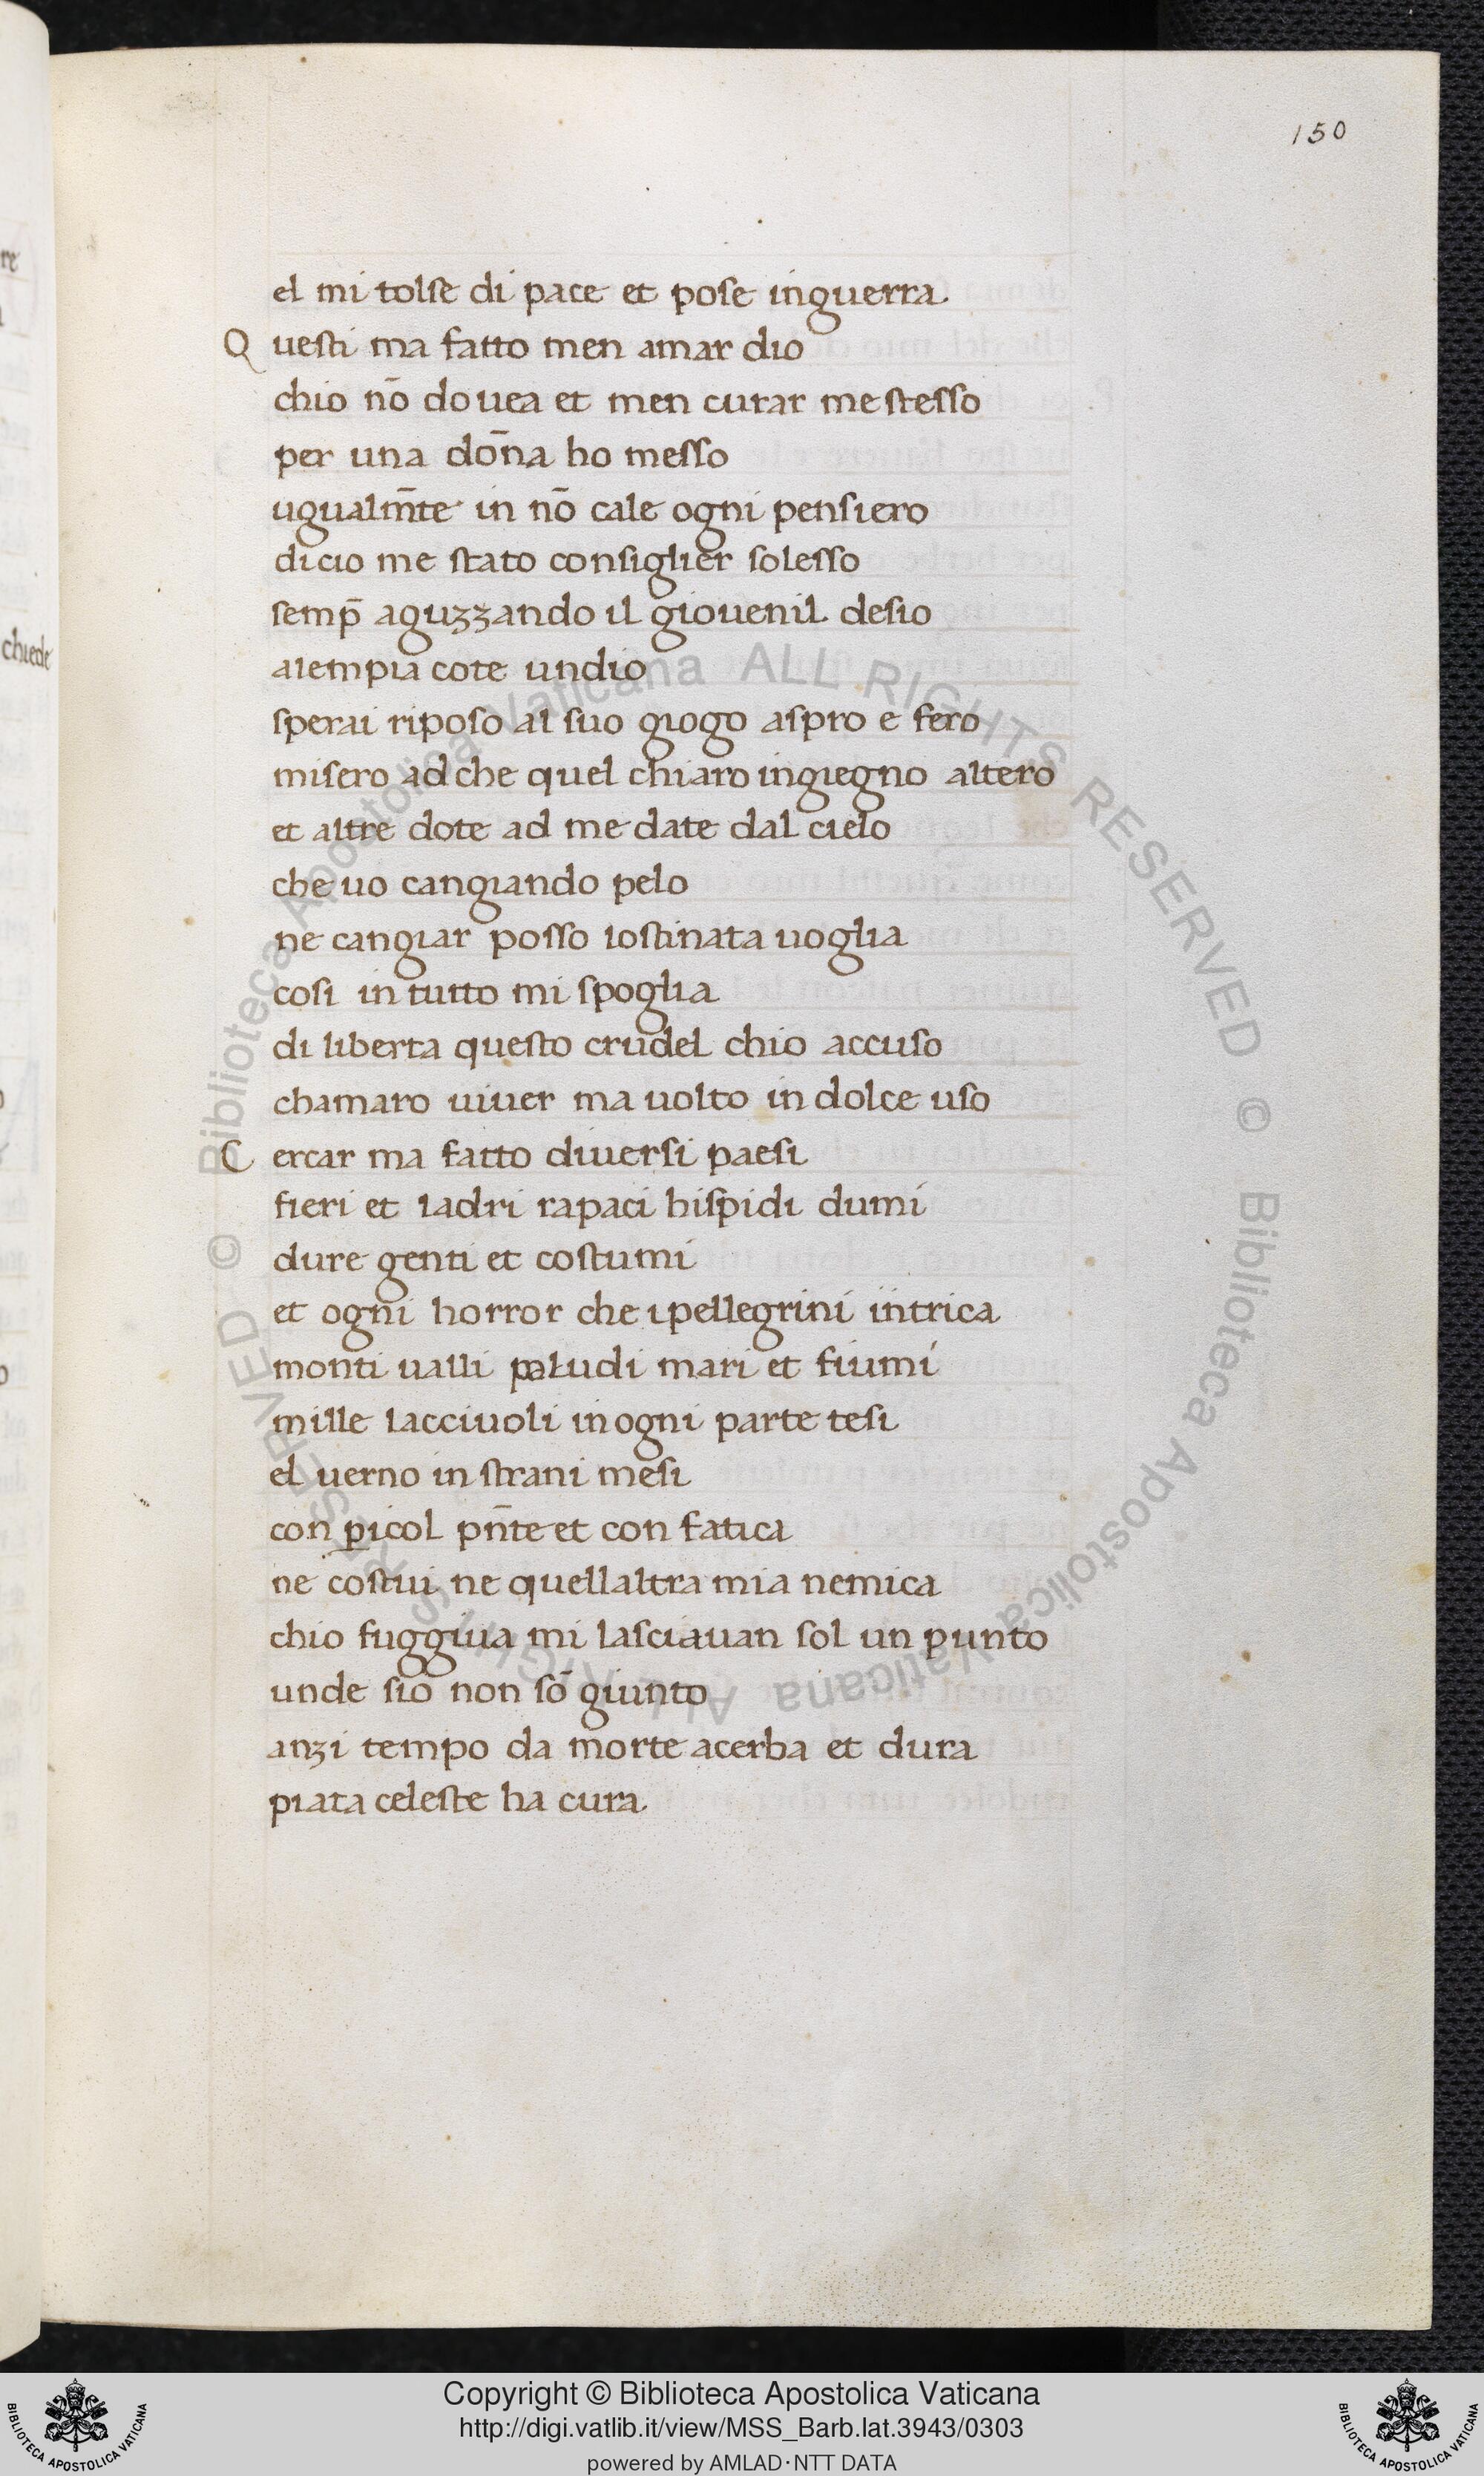 150
el mi tolse di pace et pose inguerra
Questi ma fatto men amar dio
chio nō douea et men curar me stesso
per una dōna ho messo
ugualm̄te in nō cale ogni pensiero
dicio me stato consiglier solesso
semp̄ aguzzando il giouenil desio
alempia cote undio
sperai riposo al suo giogo aspro e fero
misero ad che quel chiaro ingiegno altero
et altre dote ad me date dal cielo
che uo cangiando pelo
ne cangiar posso lostinata uoglia
cosi in tutto mi spoglia
di liberta questo crudel chio accuso
chamaro uiuer ma uolto in dolce uso
Cercar ma fatto diuersi paesi
fieri et ladri rapaci hispidi dumi
dure genti et costumi
et ogni horror che ipellegrini intrica
monti ualli paludi mari et fiumi
mille lacciuoli in ogni parte tesi
el uerno in strani mesi
con ꝑicol pn̄te et con fatica
ne costui ne quellaltra mia nemica
chio fuggiua mi lasciauan sol un punto
unde sio non sō giunto
anzi tempo da morte acerba et dura
piata celeste ha cura
chiede
Biblioteca Apostolica Vaticana ALL RIGHTS RESERVED © Biblioteca Apostolica Vaticana ALL RIGHTS RESERVED ©
Copyright © Biblioteca Apostolica Vaticana
http://digi.vatlib.it/view/MSS_Barb.lat.3943/0303
powered by AMLAD·NTT DATA
BIBLIOTECA APOSTOLICA VATICANA
BIBLIOTECA APOSTOLICA VATICANA